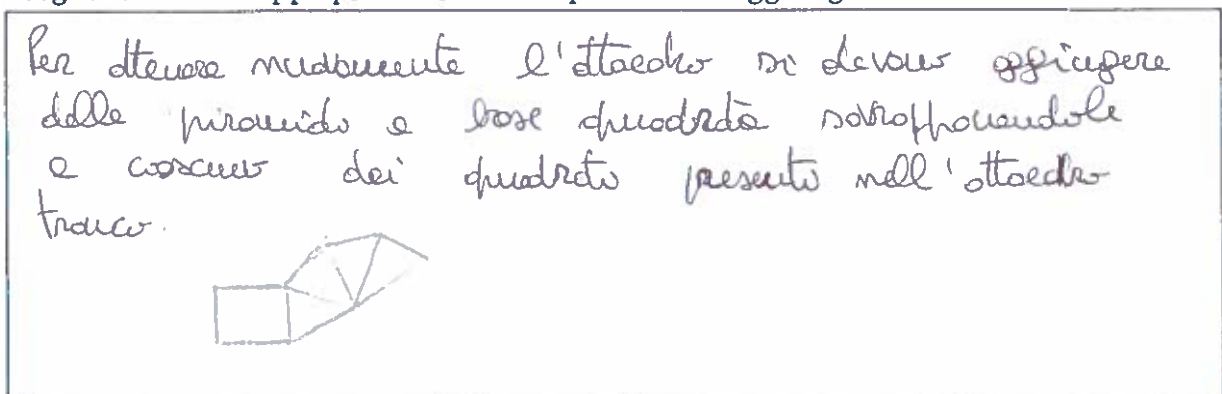 Per ottenere nuovamente l'ottaedro si devono aggiungere
delle piramidi a base quadrata sovrapponendole
a ciascuno dei quadrati presenti nell'ottaedro
tronco.